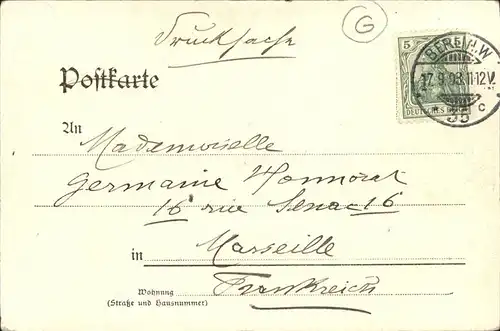 G
Drucksache
5
BERLIN.W.
17.9.03.11-12V.
35 c
DEUTSCHES REICH
Postkarte
An
Mademoiselle
Germaine Honnorat
16 rue Senac 16
in Marseille
Wohnung Frankreich
(Straße und Hausnummer)